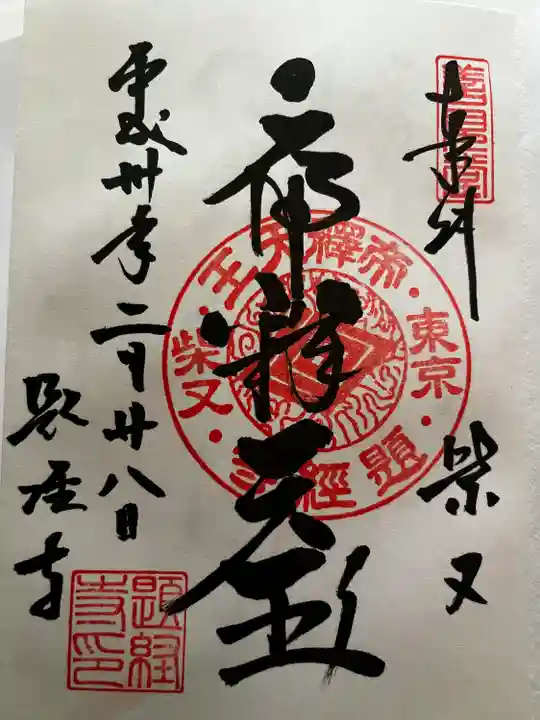 奉拝 柴又
帝釋天王
平成卅年二月廿八日
題経寺
帝釋天王
東京
柴又
題經寺
題経寺印